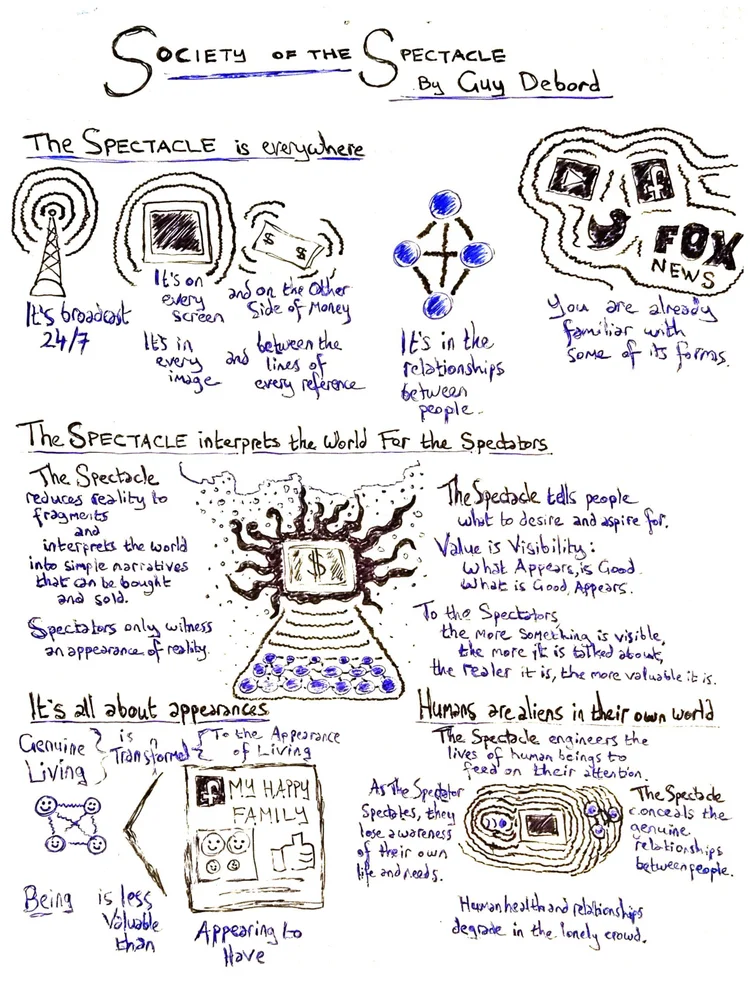 SOCIETY OF THE SPECTACLE
By Guy Debord
The SPECTACLE is everywhere
It's broadcast
24/7
It's on
every
screen
It's in
every
image
$ $
and on the Other
Side of Money
and between the
lines of
every reference
It's in the
relationships
between
people.
f
FOX
NEWS
You are already
familiar with
some of its forms.
The SPECTACLE interprets the World For the Spectators
The Spectacle
reduces reality to
fragments
and
interprets the world
into simple narratives
that can be bought
and sold.
Spectators only witness
an appearance of reality.
$
The Spectacle tells people
what to desire and aspire for.
Value is Visibility:
What Appears, is Good.
What is Good, Appears.
To the Spectators
the more something is visible,
the more it is talked about,
the realer it is, the more valuable it is.
It's all about appearances
Genuine
Living
is
Transformed
To the Appearance
of Living
f MY HAPPY
FAMILY
Being is less
Valuable
than
Appearing to
Have
Humans are aliens in their own world
The Spectacle engineers the
lives of human beings to
feed on their attention.
As the Spectator
Spectates, they
lose awareness
of their own
life and needs.
The Spectacle
conceals the
genuine
relationships
between people.
Human health and relationships
degrade in the lonely crowd.